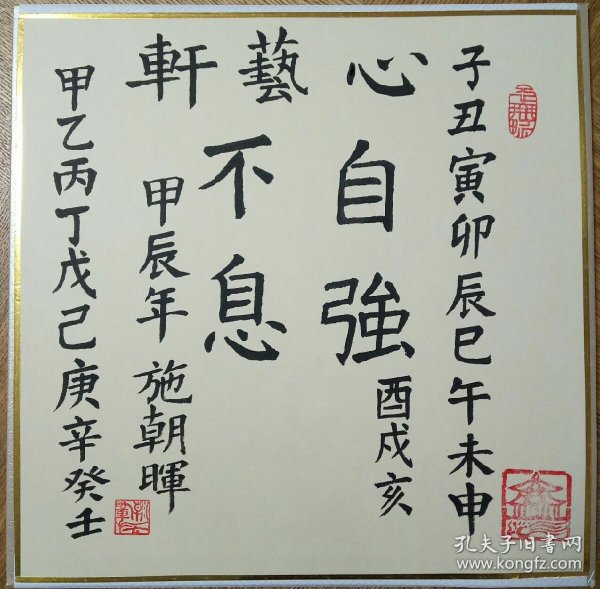 子丑寅卯辰巳午未申
酉戌亥
心自強
藝不息
軒
甲辰年 施朝暉
甲乙丙丁戊己庚辛癸壬
孔夫子旧书网
www.kongfz.com